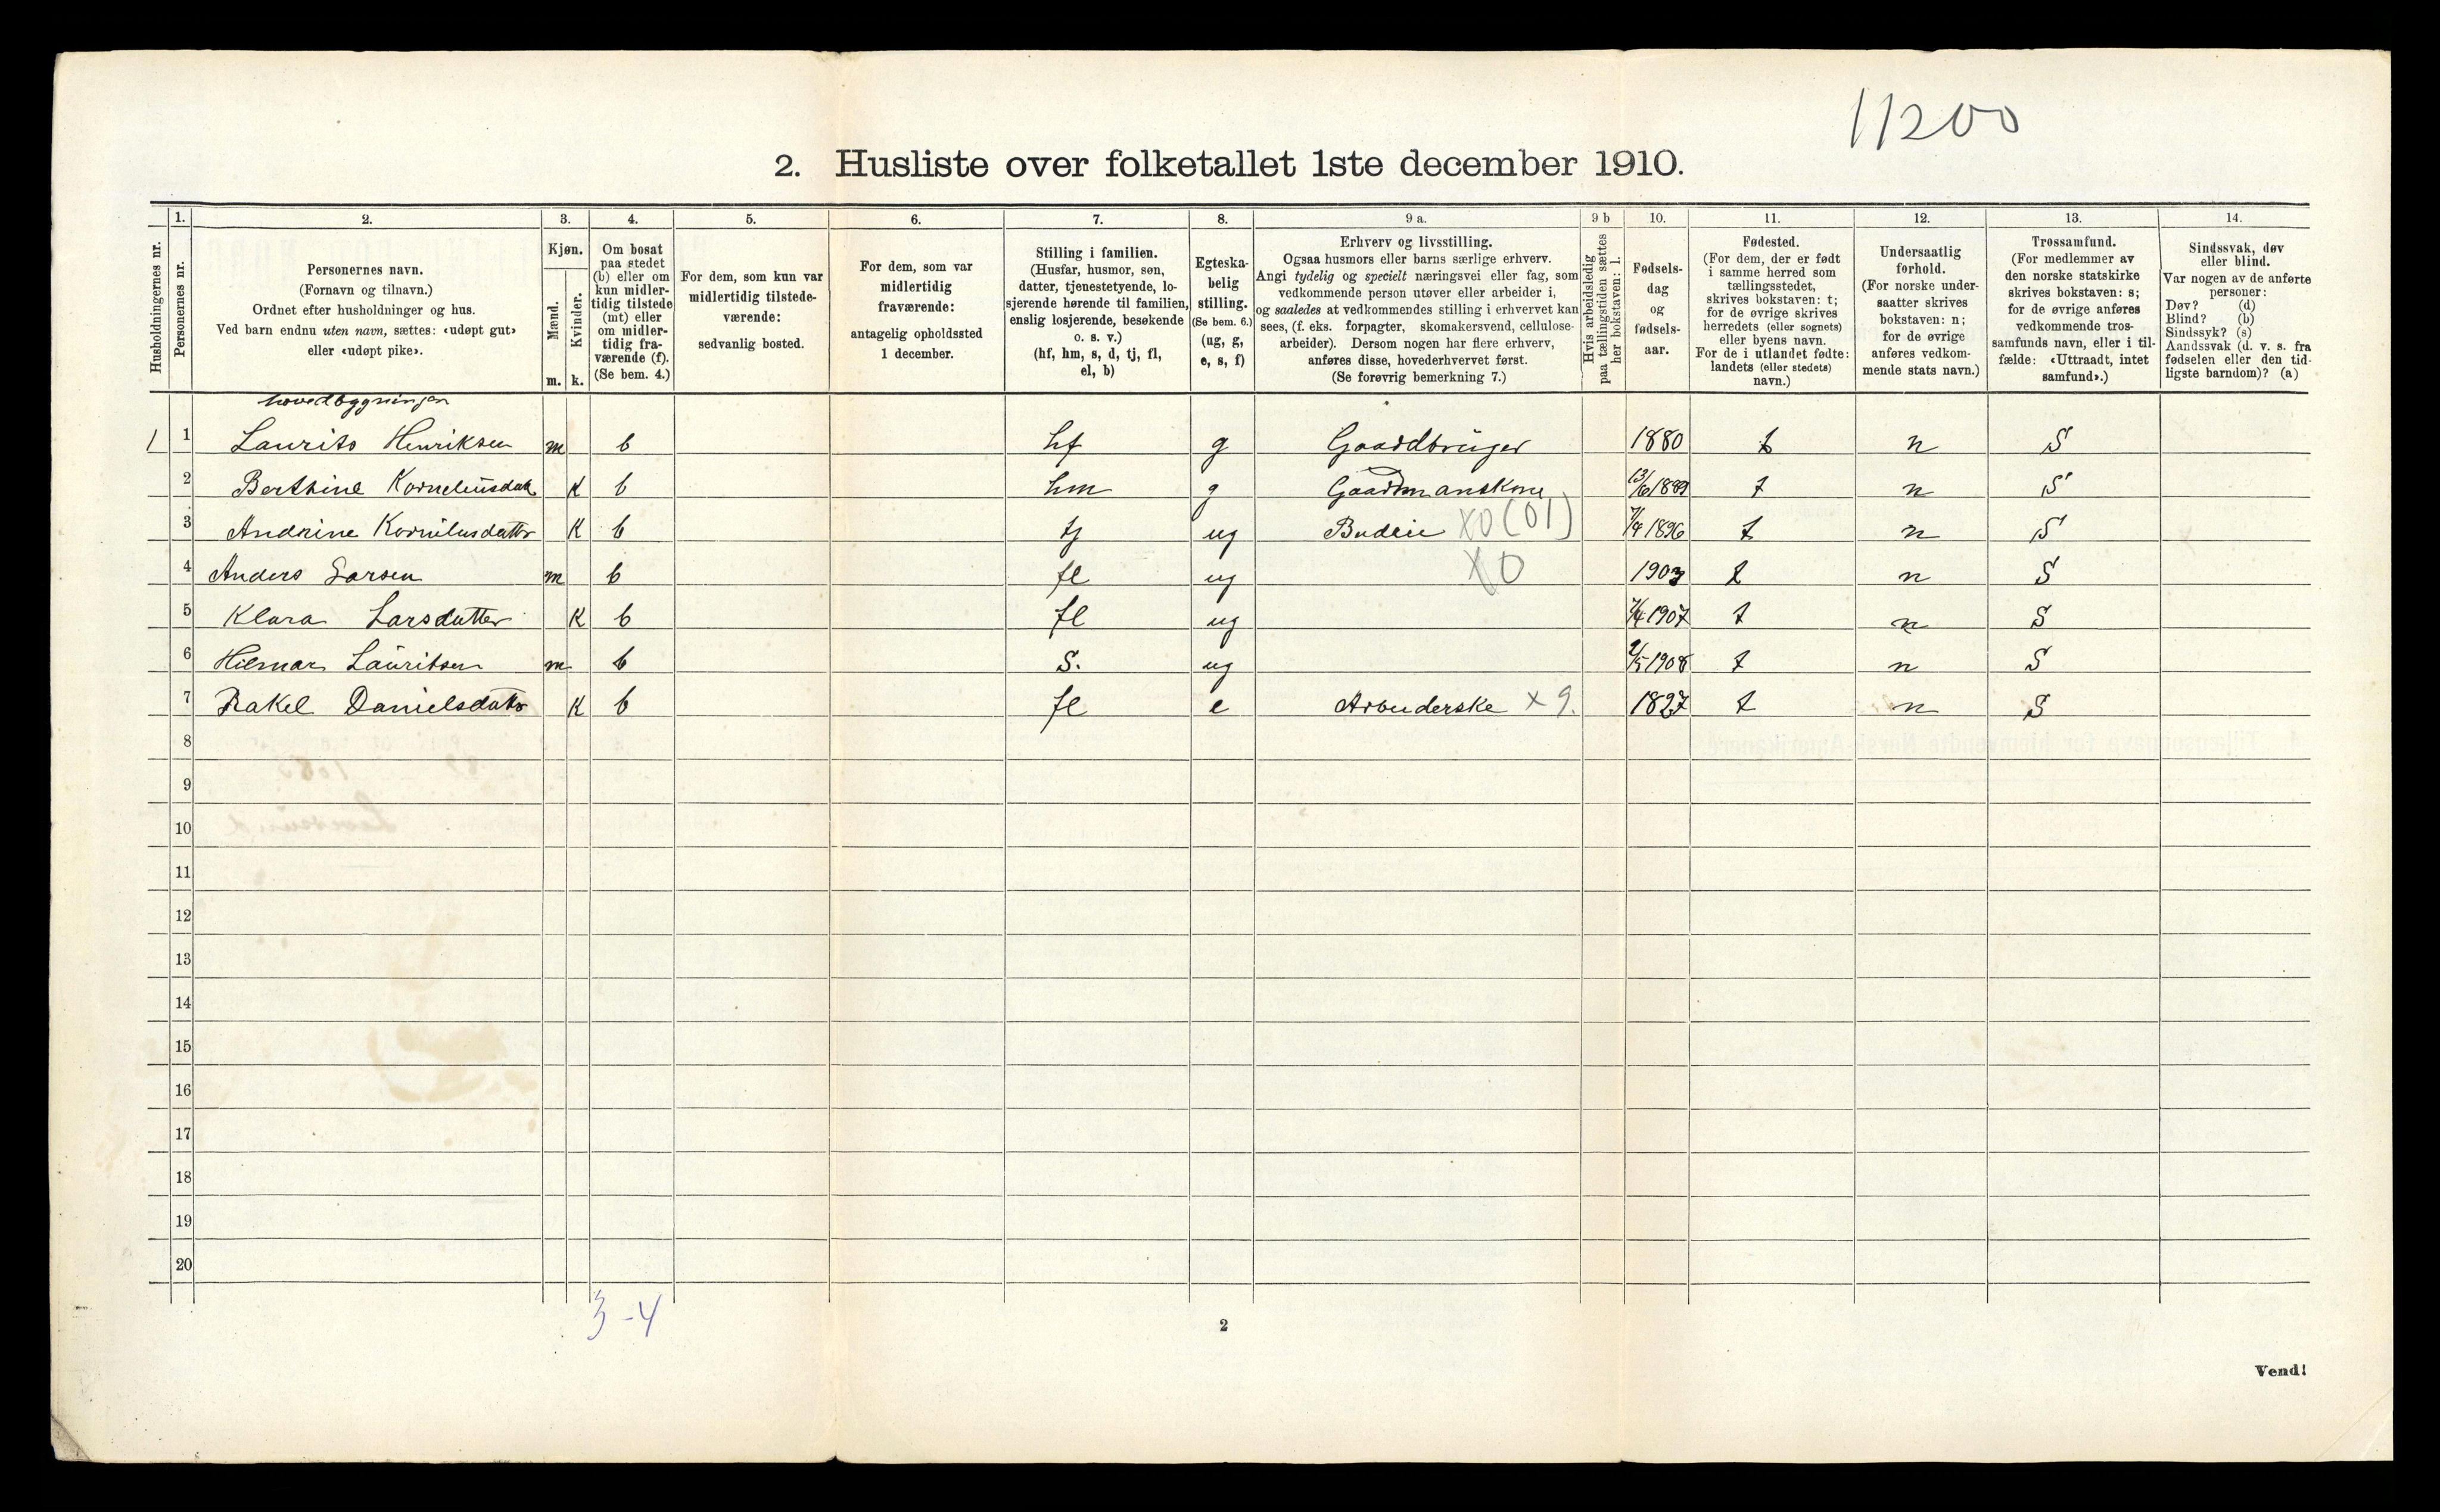 11200
2. Husliste over folketallet 1ste december 1910.
Husholdningernes nr.
1.
Personernes nr.
2.
Personernes navn.
(Fornavn og tilnavn.)
Ordnet efter husholdninger og hus.
Ved barn endnu uten navn, sættes: «udøpt gut»
eller «udøpt pike».
3.
Kjøn.
Mænd.
m.
Kvinder.
k.
4.
Om bosat
paa stedet
(b) eller om
kun midler-
tidig tilstede
(mt) eller
om midler-
tidig fra-
værende (f).
(Se bem. 4.)
5.
For dem, som kun var
midlertidig tilstede-
værende:
sedvanlig bosted.
6.
For dem, som var
midlertidig
fraværende:
antagelig opholdssted
1 december.
7.
Stilling i familien.
(Husfar, husmor, søn,
datter, tjenestetyende, lo-
sjerende hørende til familien,
enslig losjerende, besøkende
o. s. v.)
(hf, hm, s, d, tj, fl,
el, b)
8.
Egteska-
belig
stilling.
(Se bem. 6.)
(ug, g,
e, s, f)
9 a.
Erhverv og livsstilling.
Ogsaa husmors eller barns særlige erhverv.
Angi tydelig og specielt næringsvei eller fag, som
vedkommende person utøver eller arbeider i,
og saaledes at vedkommendes stilling i erhvervet kan
sees, (f. eks. forpagter, skomakersvend, cellulose-
arbeider). Dersom nogen har flere erhverv,
anføres disse, hovederhvervet først.
(Se forøvrig bemerkning 7.)
9 b
Hvis arbeidsledig
paa tællingstiden sættes
her bokstaven: l.
10.
Fødsels-
dag
og
fødsels-
aar.
11.
Fødested.
(For dem, der er født
i samme herred som
tællingsstedet,
skrives bokstaven: t;
for de øvrige skrives
herredets (eller sognets)
eller byens navn.
For de i utlandet fødte:
landets (eller stedets)
navn.)
12.
Undersaatlig
forhold.
(For norske under-
saatter skrives
bokstaven: n;
for de øvrige
anføres vedkom-
mende stats navn.)
13.
Trossamfund.
(For medlemmer av
den norske statskirke
skrives bokstaven: s;
for de øvrige anføres
vedkommende tros-
samfunds navn, eller i til-
fælde: «Uttraadt, intet
samfund».)
14.
Sindssvak, døv
eller blind.
Var nogen av de anførte
personer:
Døv? (d)
Blind? (b)
Sindssyk? (s)
Aandssvak (d. v. s. fra
fødselen eller den tid-
ligste barndom)? (a)
hovedbygningen
1 1 Laurits Henriksen m b hf g Gaardbruger 1880 t n S
2 Berthine Korneliusdatt K b hm g Gaardmanskone 13/6 1889 t n S
3 Andrine Kornilusdattr K b tj ug Budeie X0 (01) 7/4 1896 t n S
4 Anders Larsen m b fl ug X0 1903 t n S
5 Klara Larsdatter K b fl ug 7/4 1907 t n S
6 Hilmar Lauritsen m b S. ug 2/5 1908 t n S
7 Rakel Danielsdattr K b fl e Arbeiderske x 9. 1827 t n S
8
9
10
11
12
13
14
15
16
17
18
19
20
3-4
2
Vend!